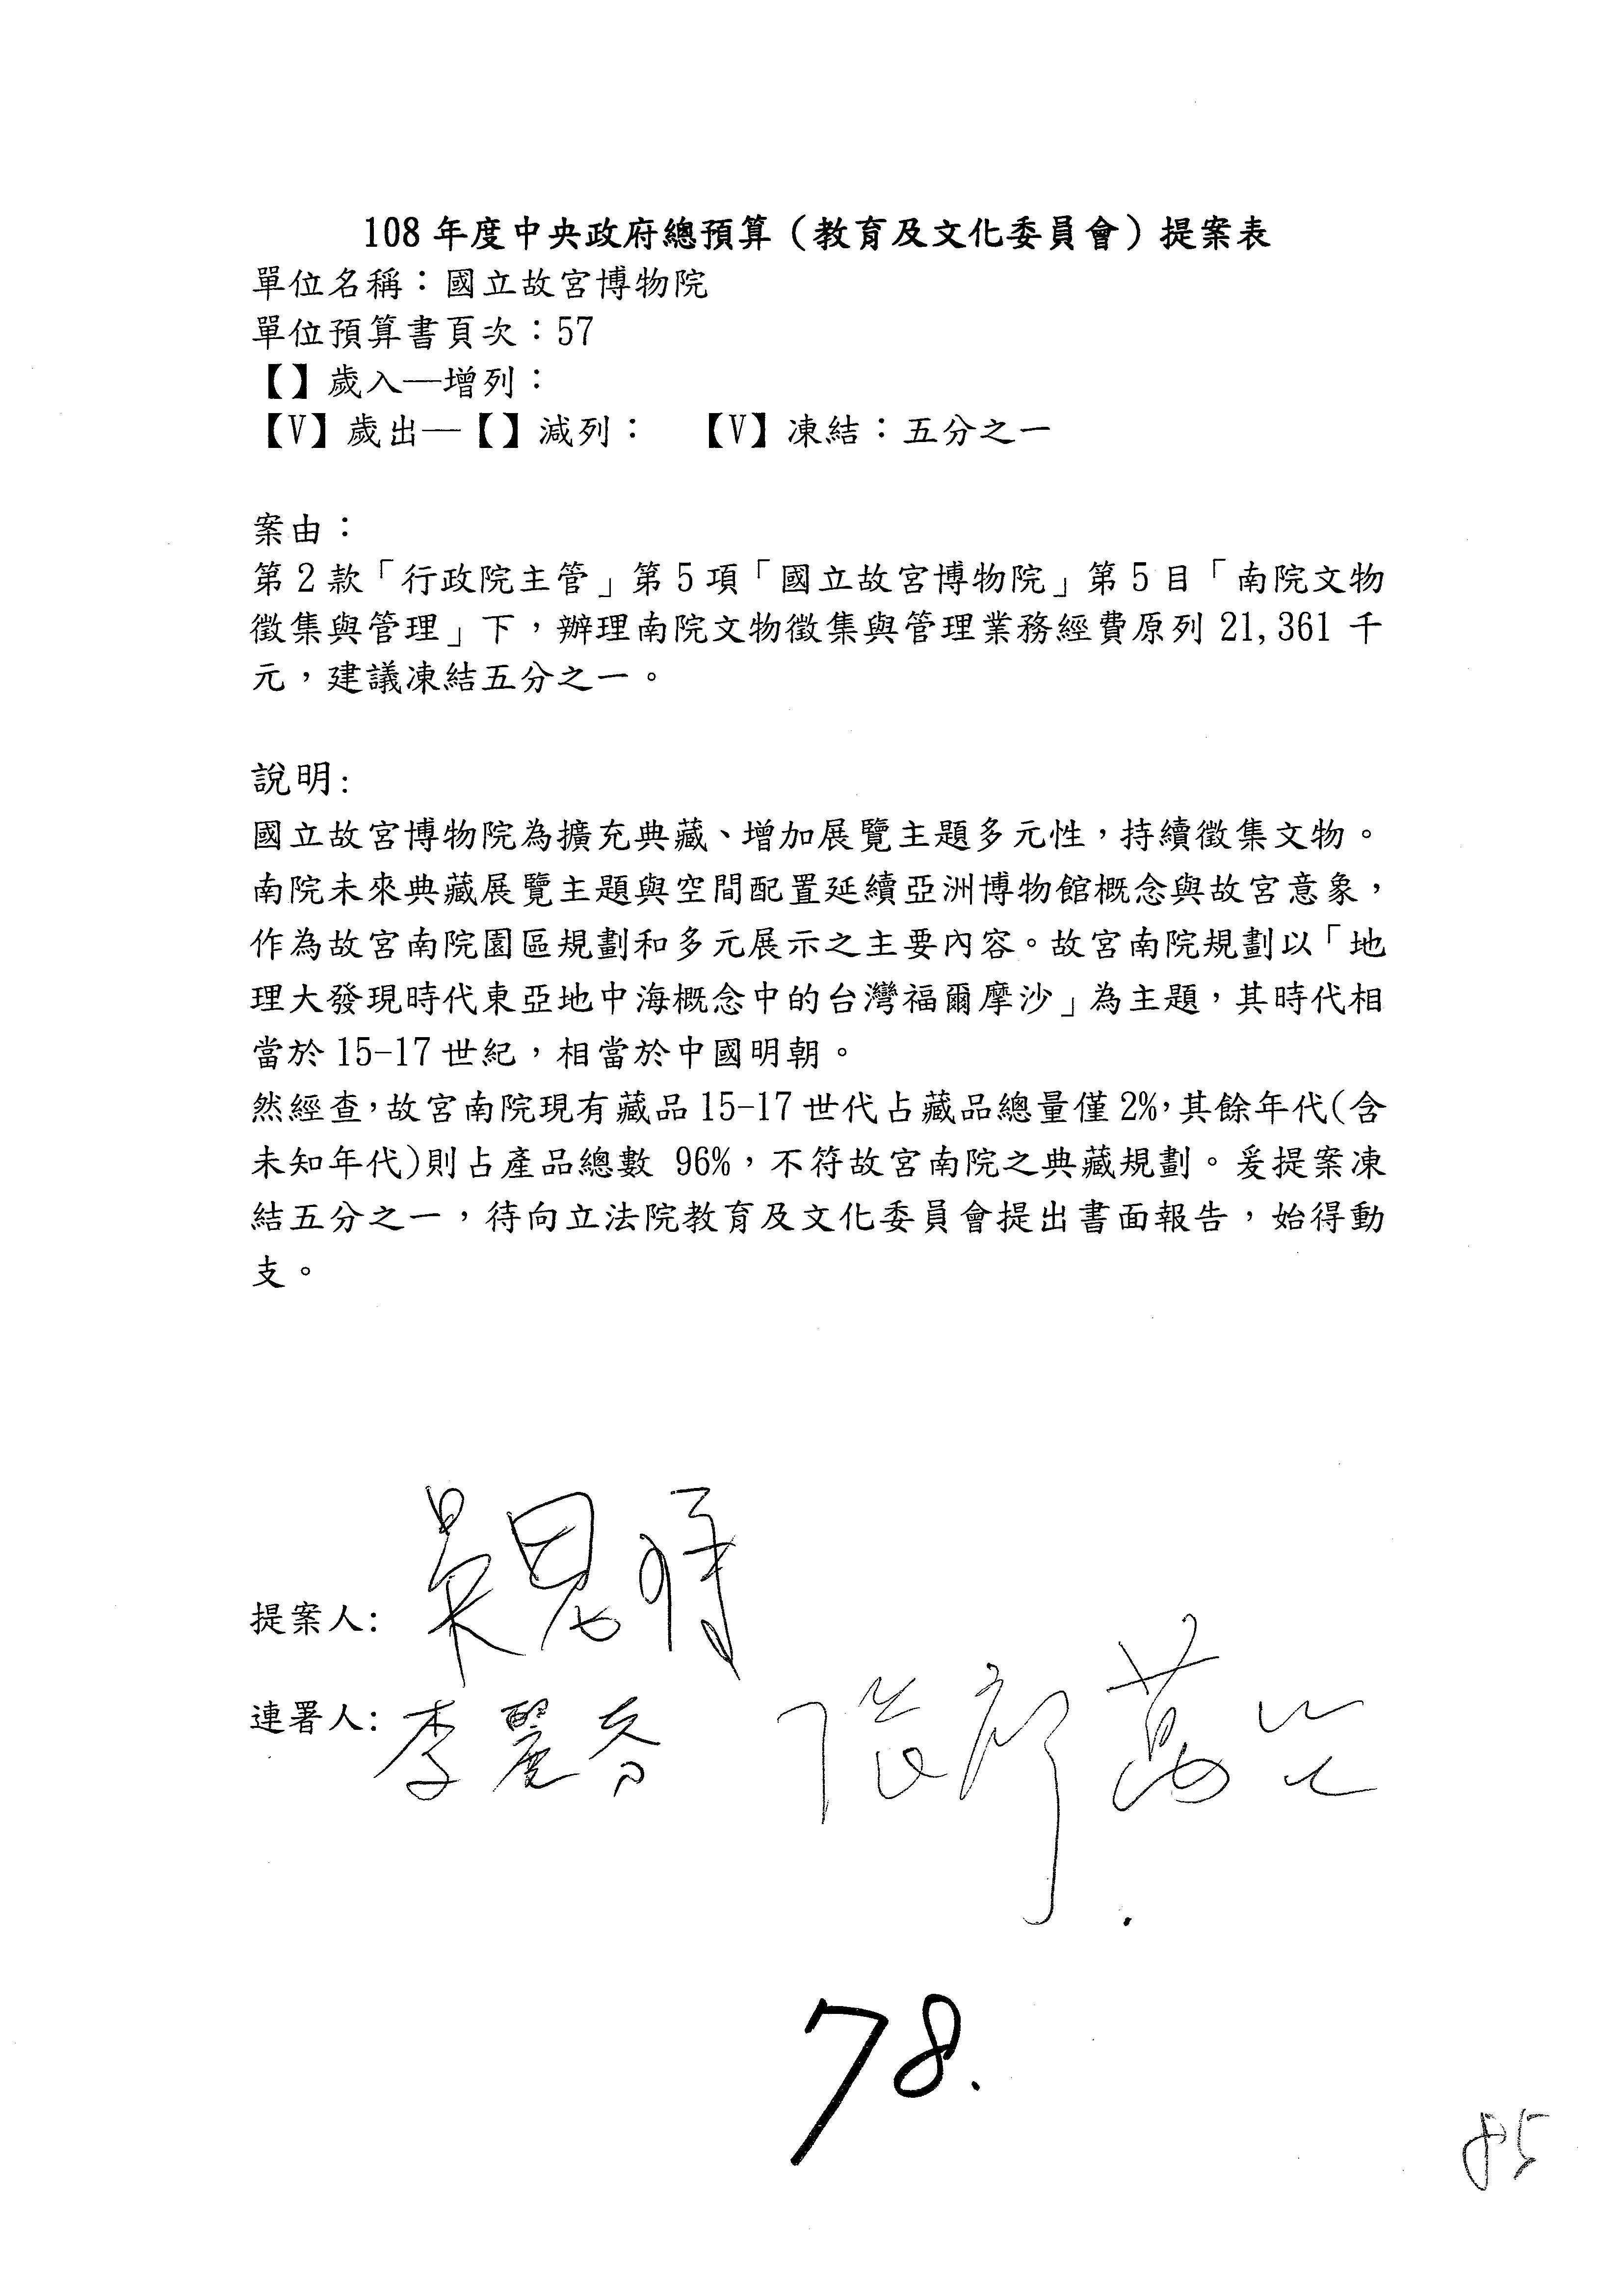 108 年度中央政府總預算（教育及文化委員會）提案表
單位名稱：國立故宮博物院
單位預算書頁次：57
【】歲入—增列：
【V】歲出—【】減列： 【V】凍結：五分之一
案由：
第 2 款「行政院主管」第 5 項「國立故宮博物院」第 5 目「南院文物
徵集與管理」下，辦理南院文物徵集與管理業務經費原列 21,361 千
元，建議凍結五分之一。
說明:
國立故宮博物院為擴充典藏、增加展覽主題多元性，持續徵集文物。
南院未來典藏展覽主題與空間配置延續亞洲博物館概念與故宮意象，
作為故宮南院園區規劃和多元展示之主要內容。故宮南院規劃以「地
理大發現時代東亞地中海概念中的台灣福爾摩沙」為主題，其時代相
當於 15-17 世紀，相當於中國明朝。
然經查，故宮南院現有藏品 15-17 世代占藏品總量僅 2%，其餘年代(含
未知年代)則占產品總數 96%，不符故宮南院之典藏規劃。爰提案凍
結五分之一，待向立法院教育及文化委員會提出書面報告，始得動
支。
提案人: 吳思瑤
連署人: 李麗芬 張廖萬堅
78.
85